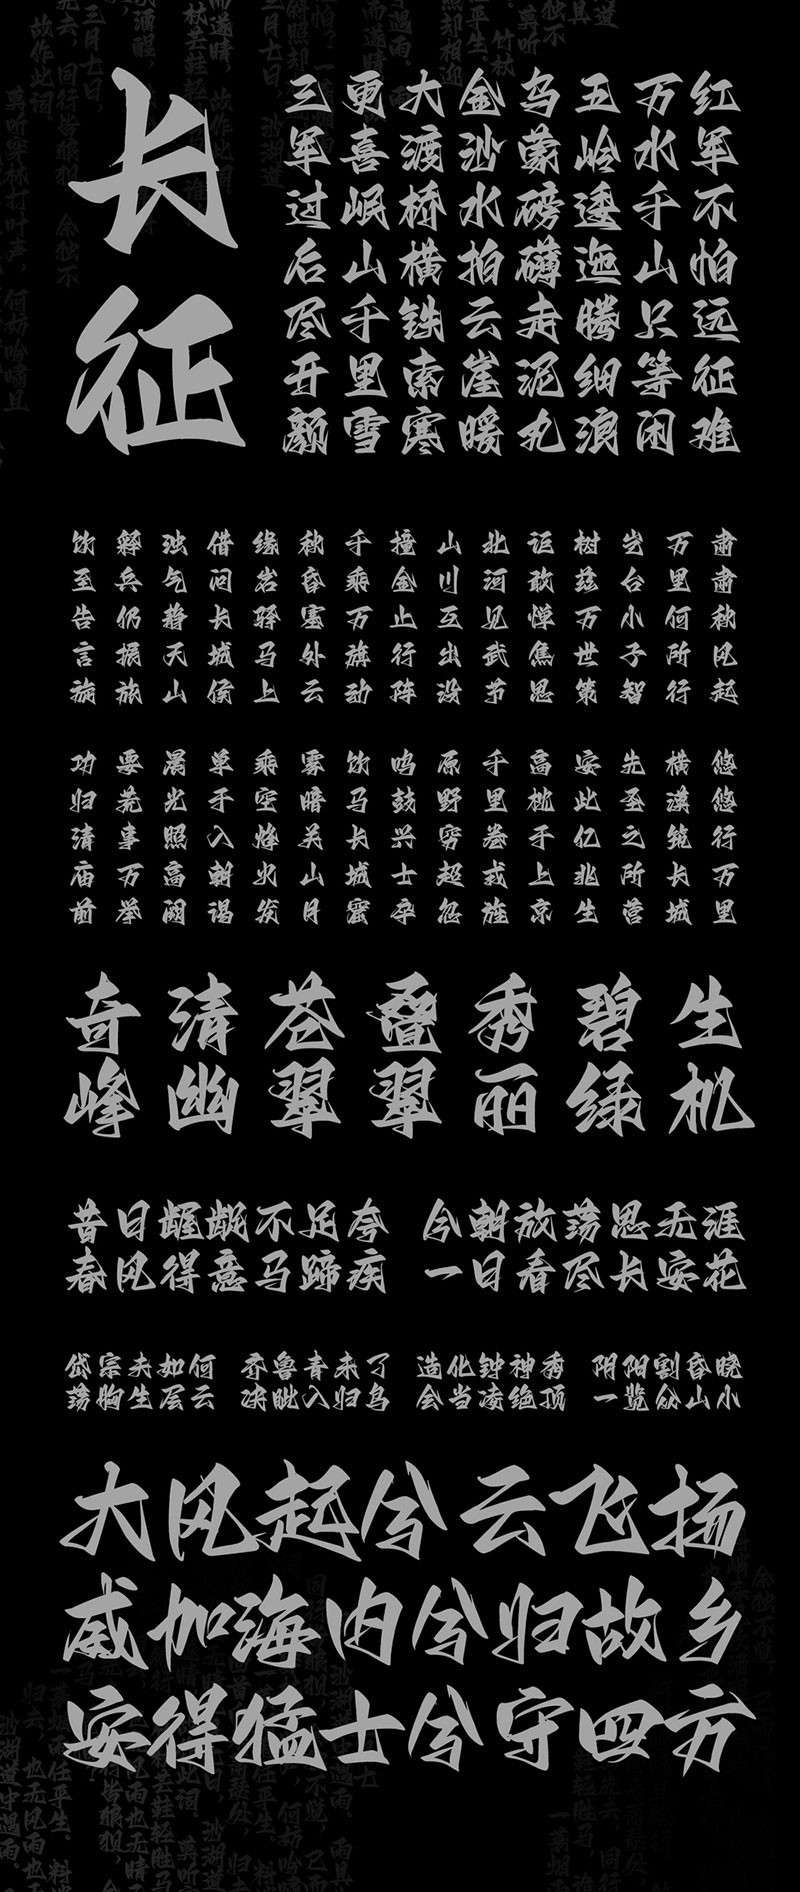 长征
红军不怕远征难
万水千山只等闲
五岭逶迤腾细浪
乌蒙磅礴走泥丸
金沙水拍云崖暖
大渡桥横铁索寒
更喜岷山千里雪
三军过后尽开颜
肃肃秋风起
万里何所行
岂台小子智
树兹万世策
讵敢惮焦思
北河见武节
山川互出没
撞金止行阵
千乘万旗动
秋昏塞外云
缘岩驿马上
借问长城侯
浊气静天山
释兵仍振旅
饮至告言旋
悠悠行万里
横漠筑长城
先圣之所营
安此亿兆生
高枕于上京
千里卷戎旌
原野穷超忽
鸣鼓兴士卒
饮马长城窟
雾暗关山月
乘空烽火发
单于入朝谒
光照高阙
要荒事万举
功归清庙前
生机
碧绿
秀丽
叠翠
苍翠
清幽
奇峰
昔日龌龊不足夸 今朝放荡思无涯
春风得意马蹄疾 一日看尽长安花
岱宗夫如何 齐鲁青未了 造化钟神秀 阴阳割昏晓
荡胸生层云 决眦入归鸟 会当凌绝顶 一览众山小
大风起兮云飞扬
威加海内兮归故乡
安得猛士兮守四方